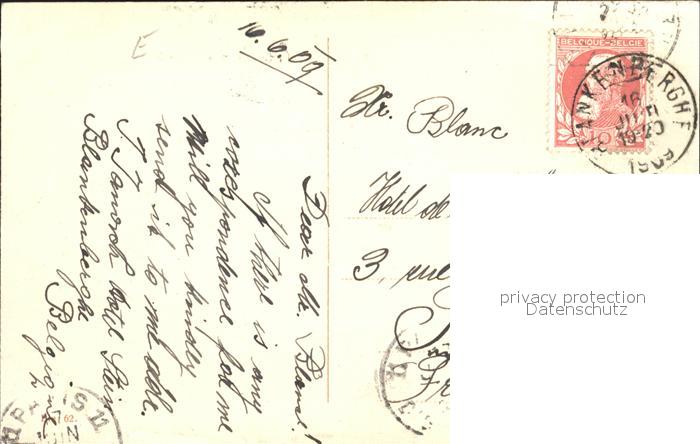 E
16.6.09
Dear Mr. Blanc!
If there is any
correspondence for me
will you kindly
send it to me addr.
Hotel Stein
Blankenberghe
Belgique
Blanc
Hotel de
3, rue
BELGIQUE-BELGIE
10
BLANKENBERGHE
16
JUIN
19-20
1909
PARIS
62.
privacy protection
Datenschutz